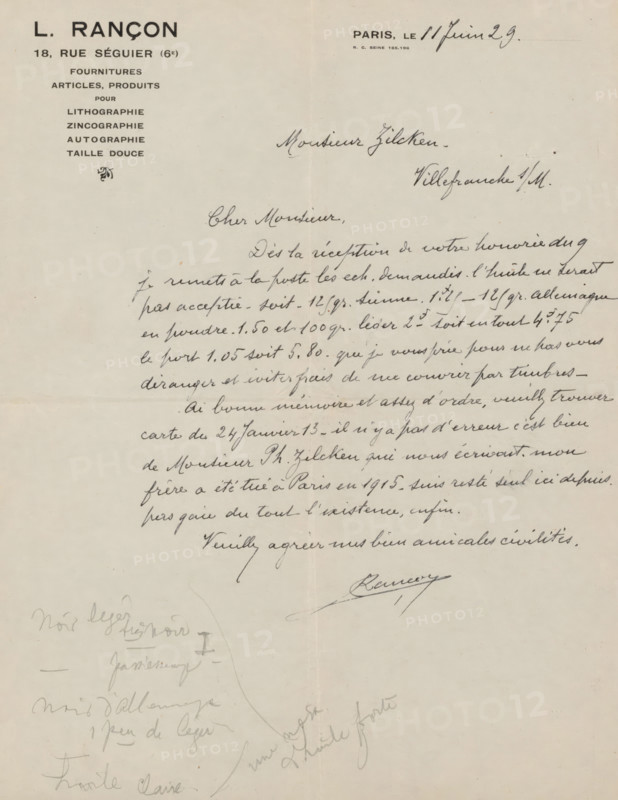 L. RANÇON
18, RUE SÉGUIER (6e)
FOURNITURES
ARTICLES, PRODUITS
POUR
LITHOGRAPHIE
ZINCOGRAPHIE
AUTOGRAPHIE
TAILLE DOUCE
PARIS, LE 11 Juin 29.
R. C. SEINE
Monsieur Zilcken.
Villefranche s/M.
Cher Monsieur,
Dès la réception de votre honorée du 9
je remets à la poste les ech. demandés. l'huile ne serait
pas acceptée - soit - 125 gr. sienne. 1.25 - 125 gr. allemagne
en poudre. 1.50 et 100 gr. léger 2 soit en tout 4.75
le port 1.05 soit 5.80. que je vous prie pour ne pas vous
déranger et éviter frais de me couvrir par timbres -
Ai bonne mémoire et assez d'ordre, veuillez trouver
carte du 24 Janvier 13 - il n'y a pas d'erreur c'est bien
de Monsieur Ph. Zilcken qui nous écrivait. mon
frère a été tué à Paris en 1915 - suis resté seul ici depuis.
pas gaie du tout l'existence, enfin.
Veuillez agréer mes bien amicales civilités.
Rançon
Noir léger
noir
noir d'allemagne
1 peu de léger
une
d'huile forte
huile claire
PHOTO12